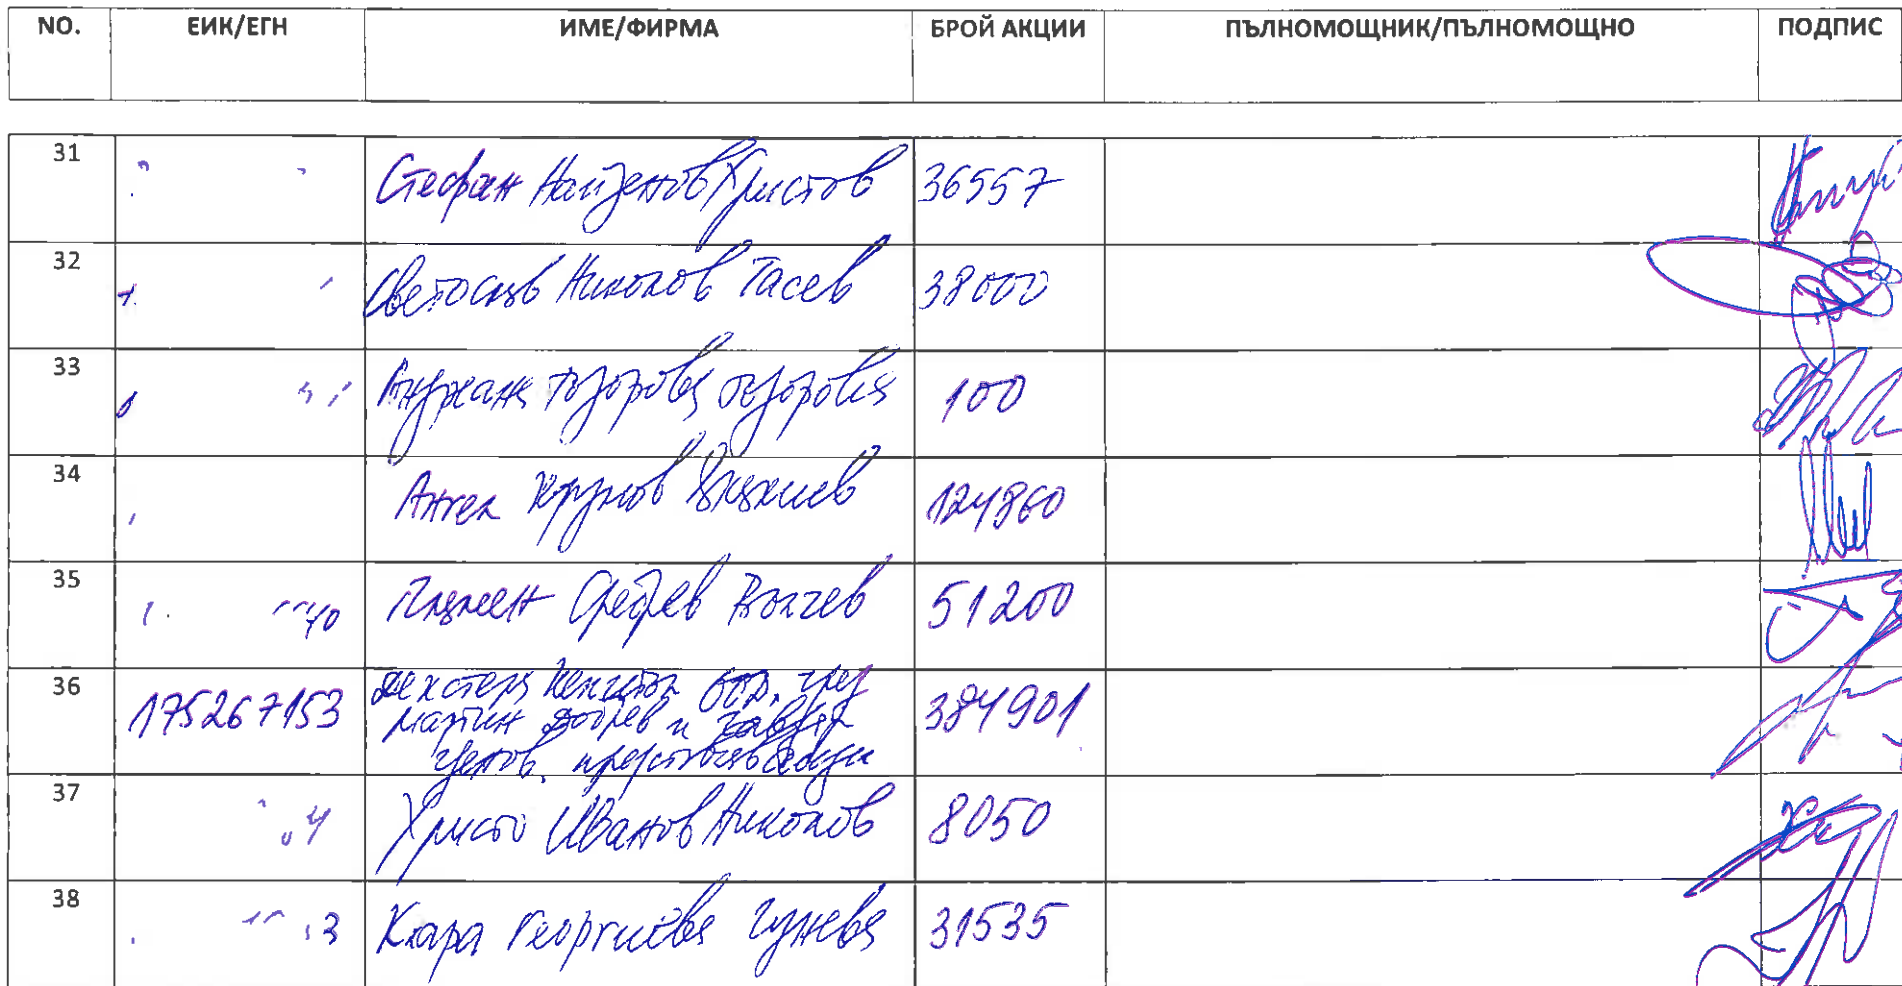 NO. ЕИК/ЕГН ИМЕ/ФИРМА БРОЙ АКЦИИ ПЪЛНОМОЩНИК/ПЪЛНОМОЩНО ПОДПИС
31 Стефан Найденов Христов 36557
32 Светослав Николов Тасев 38000
33 Тодорова Тодорова 100
34 Ангел 124860
35 Пламен Волчев 51200
36 175267153 384901
Мартин Добрев и
Ценов, представляващи
37 Христо Иванов Николов 8050
38 Клара Георгиева Гунева 31535